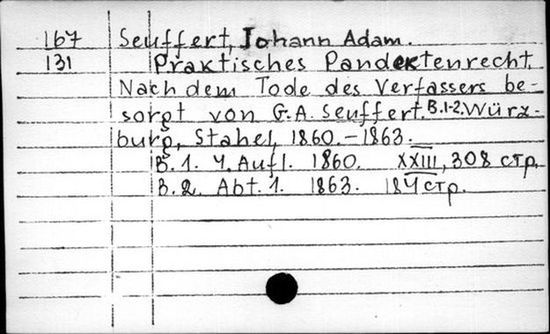 167 Seuffert, Johann Adam.
131 Praktisches Pandektenrecht.
Nach dem Tode des Verfassers be-
sorgt von G.A. Seuffert. B.1-2. Würz-
burg, Stahel, 1860.-1863.
B.1. 4. Aufl. 1860. XXIII, 308 стр.
B.2. Abt. 1. 1863. 184 стр.